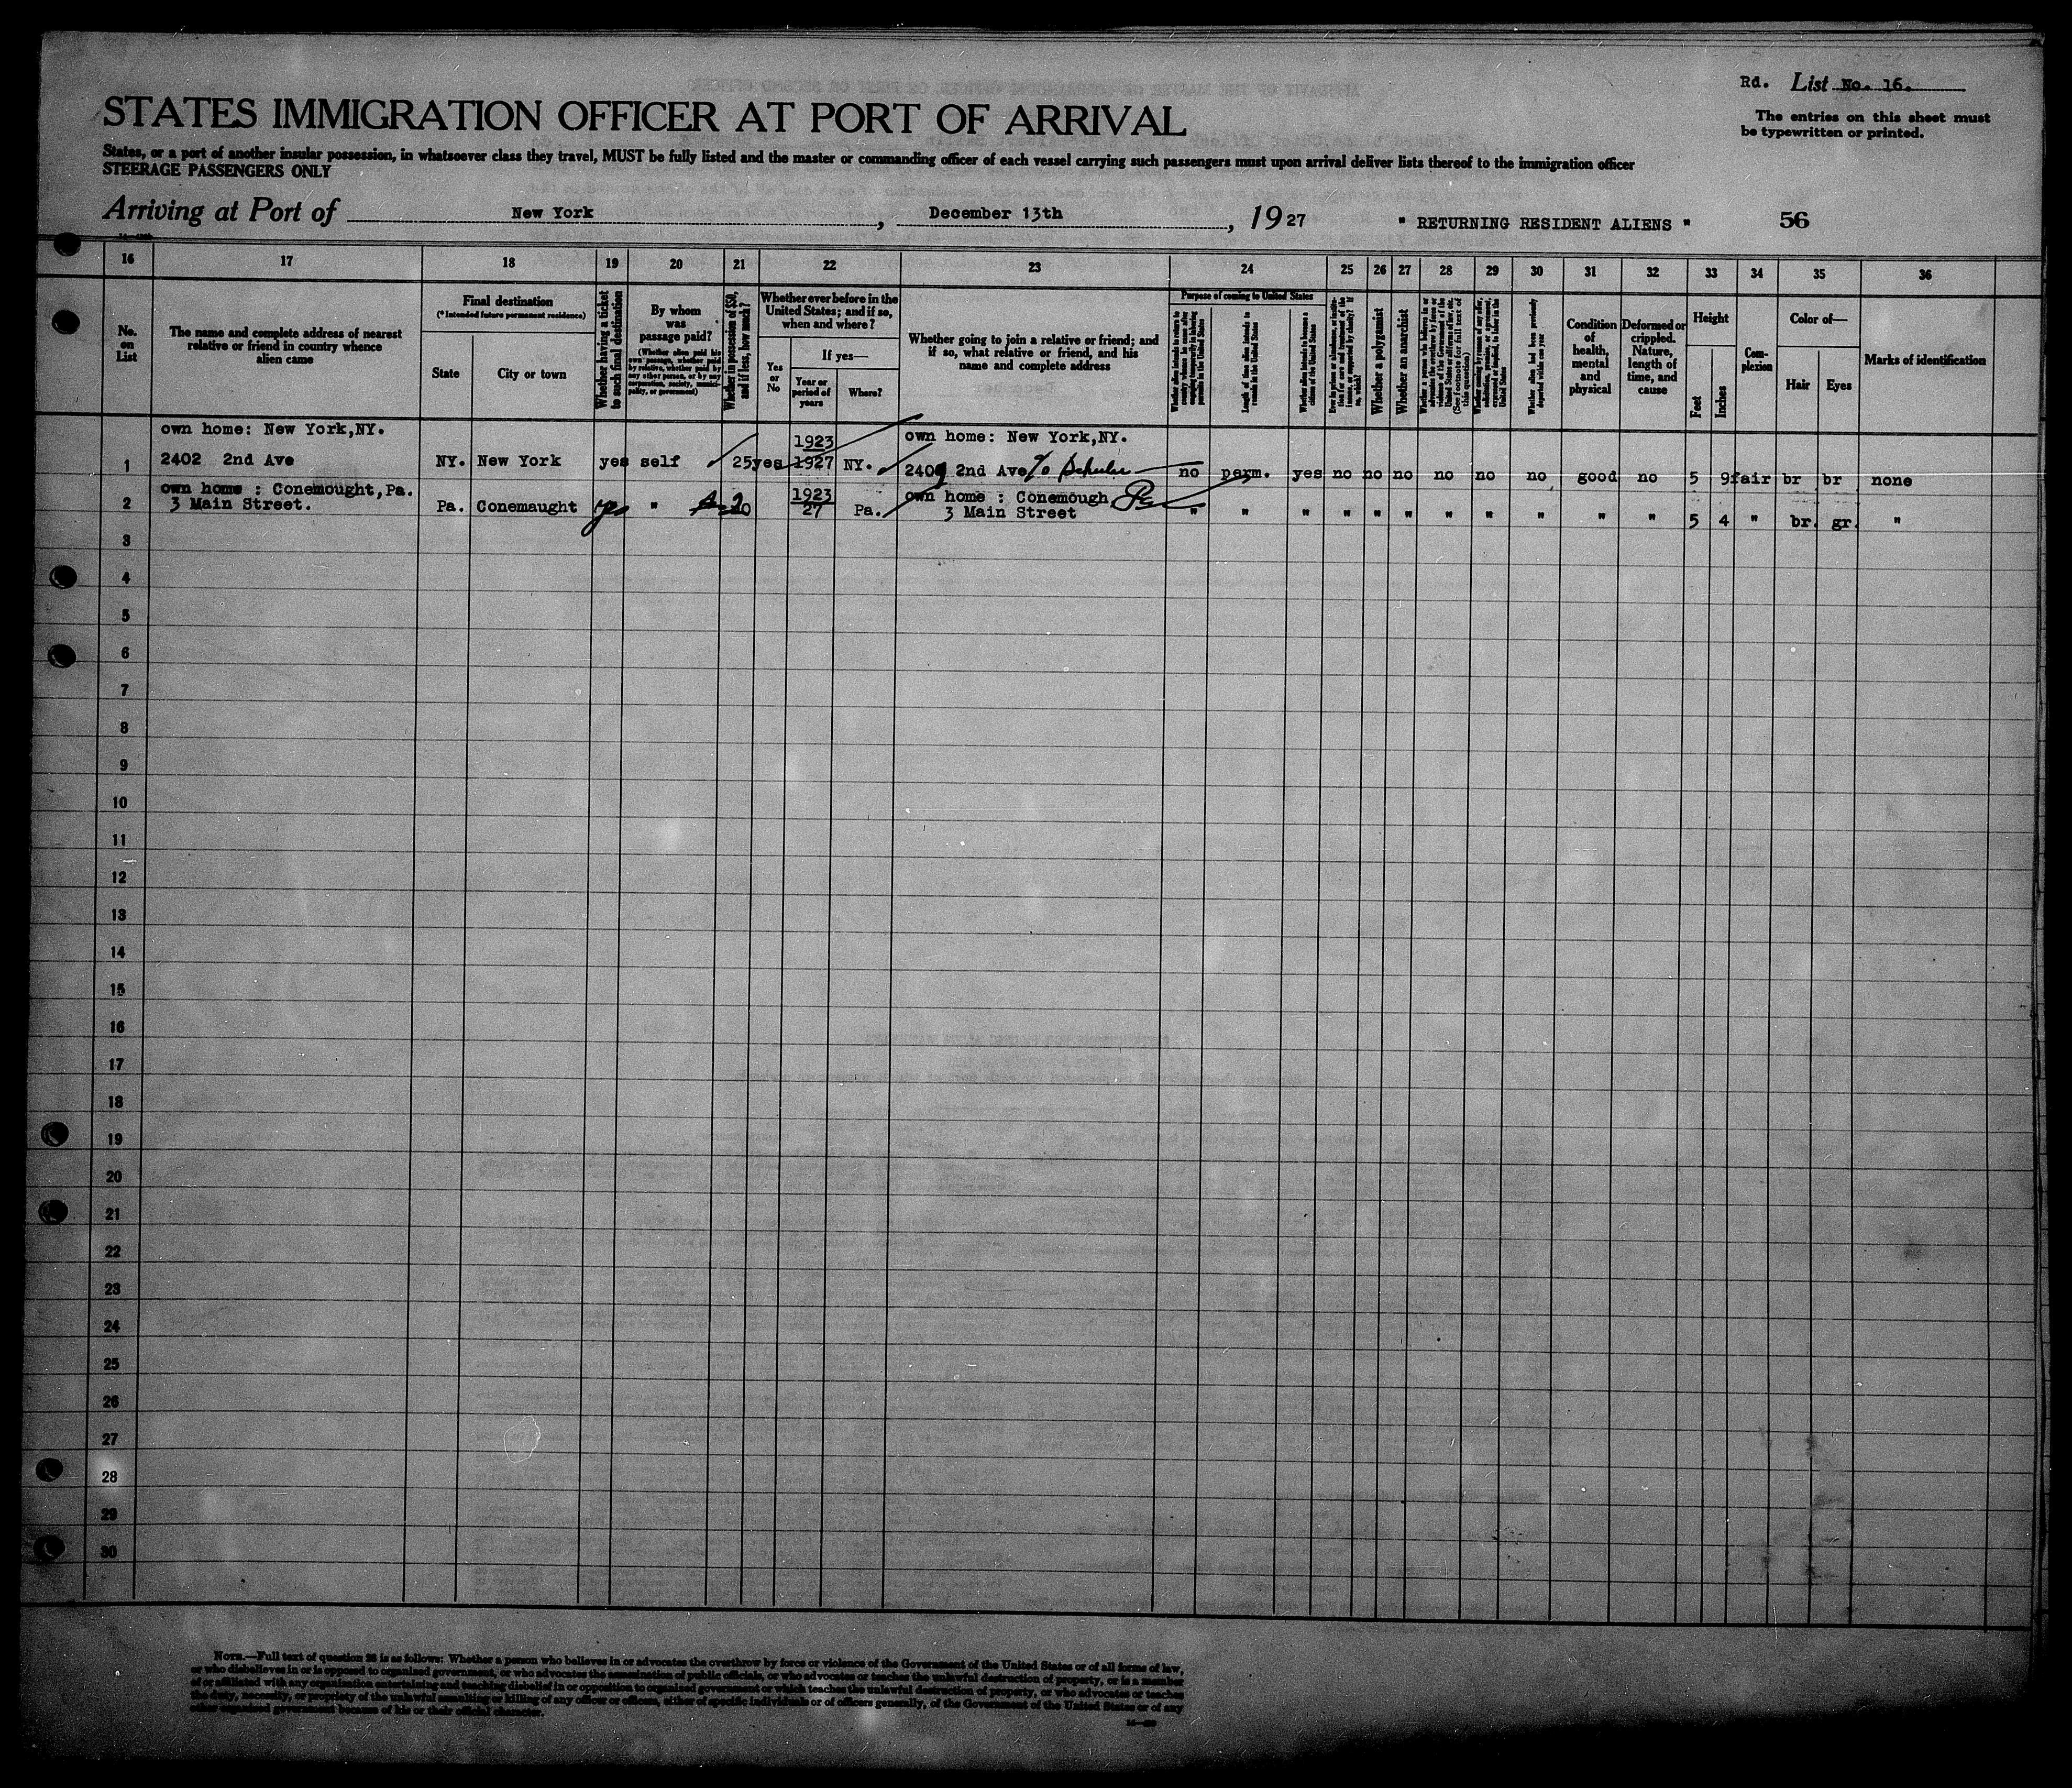 Rd. List No. 16.
The entries on this sheet must
be typewritten or printed.
STATES IMMIGRATION OFFICER AT PORT OF ARRIVAL
States, or a port of another insular possession, in whatsoever class they travel, MUST be fully listed and the master or commanding officer of each vessel carrying such passengers must upon arrival deliver lists thereof to the immigration officer
STEERAGE PASSENGERS ONLY
Arriving at Port of New York, December 13th, 1927 " RETURNING RESIDENT ALIENS " 56
16 17 18 19 20 21 22 23 24 25 26 27 28 29 30 31 32 33 34 35 36
No. on List
The name and complete address of nearest
relative or friend in country whence
alien came
Final destination
(*Intended future permanent residence)
State
City or town
Whether having a ticket
to such final destination
By whom
was
passage paid?
(Whether alien paid his
own passage, whether paid
by relative, whether paid by
any other person, or by any
corporation, society, munici-
pality, or government)
Whether in possession of $50,
and if less, how much?
Whether ever before in the
United States; and if so,
when and where?
Yes or No
If yes—
Year or
period of
years
Where?
Whether going to join a relative or friend; and
if so, what relative or friend, and his
name and complete address
Purpose of coming to United States
Length of time alien intends to
remain in the United States
Whether alien intends to become a
citizen of the United States
Whether a polygamist
Whether an anarchist
Whether alien had been previously
deported within one year
Condition
of
health,
mental
and
physical
Deformed or
crippled.
Nature,
length of
time, and
cause
Height
Feet
Inches
Com-
plexion
Color of—
Hair
Eyes
Marks of identification
own home: New York,NY. 1923 own home: New York,NY.
1 2402 2nd Ave NY. New York yes self 25 yes 1927 NY. 2409 2nd Ave % Schuler no perm. yes no no no no no no good no 5 9 fair br br none
own home : Conemought,Pa. 1923 own home : Conemough Pa
2 3 Main Street. Pa. Conemaught yes " 20 27 Pa. 3 Main Street " " " " " " " " " " " 5 4 " br. gr. "
3
4
5
6
7
8
9
10
11
12
13
14
15
16
17
18
19
20
21
22
23
24
25
26
27
28
29
30
NOTE.—Full text of question 28 is as follows: Whether a person who believes in or advocates the overthrow by force or violence of the Government of the United States or of all forms of law,
or who disbelieves in or is opposed to organized government, or who advocates the assassination of public officials, or who advocates or teaches the unlawful destruction of property, or is a member
of or affiliated with any organization entertaining and teaching disbelief in or opposition to organized government or which teaches the unlawful destruction of property, or who advocates or teaches
the duty, necessity, or propriety of the unlawful assaulting or killing of any officer or officers, either of specific individuals or of officers generally, of the Government of the United States or of any
other organized government because of his or their official character.